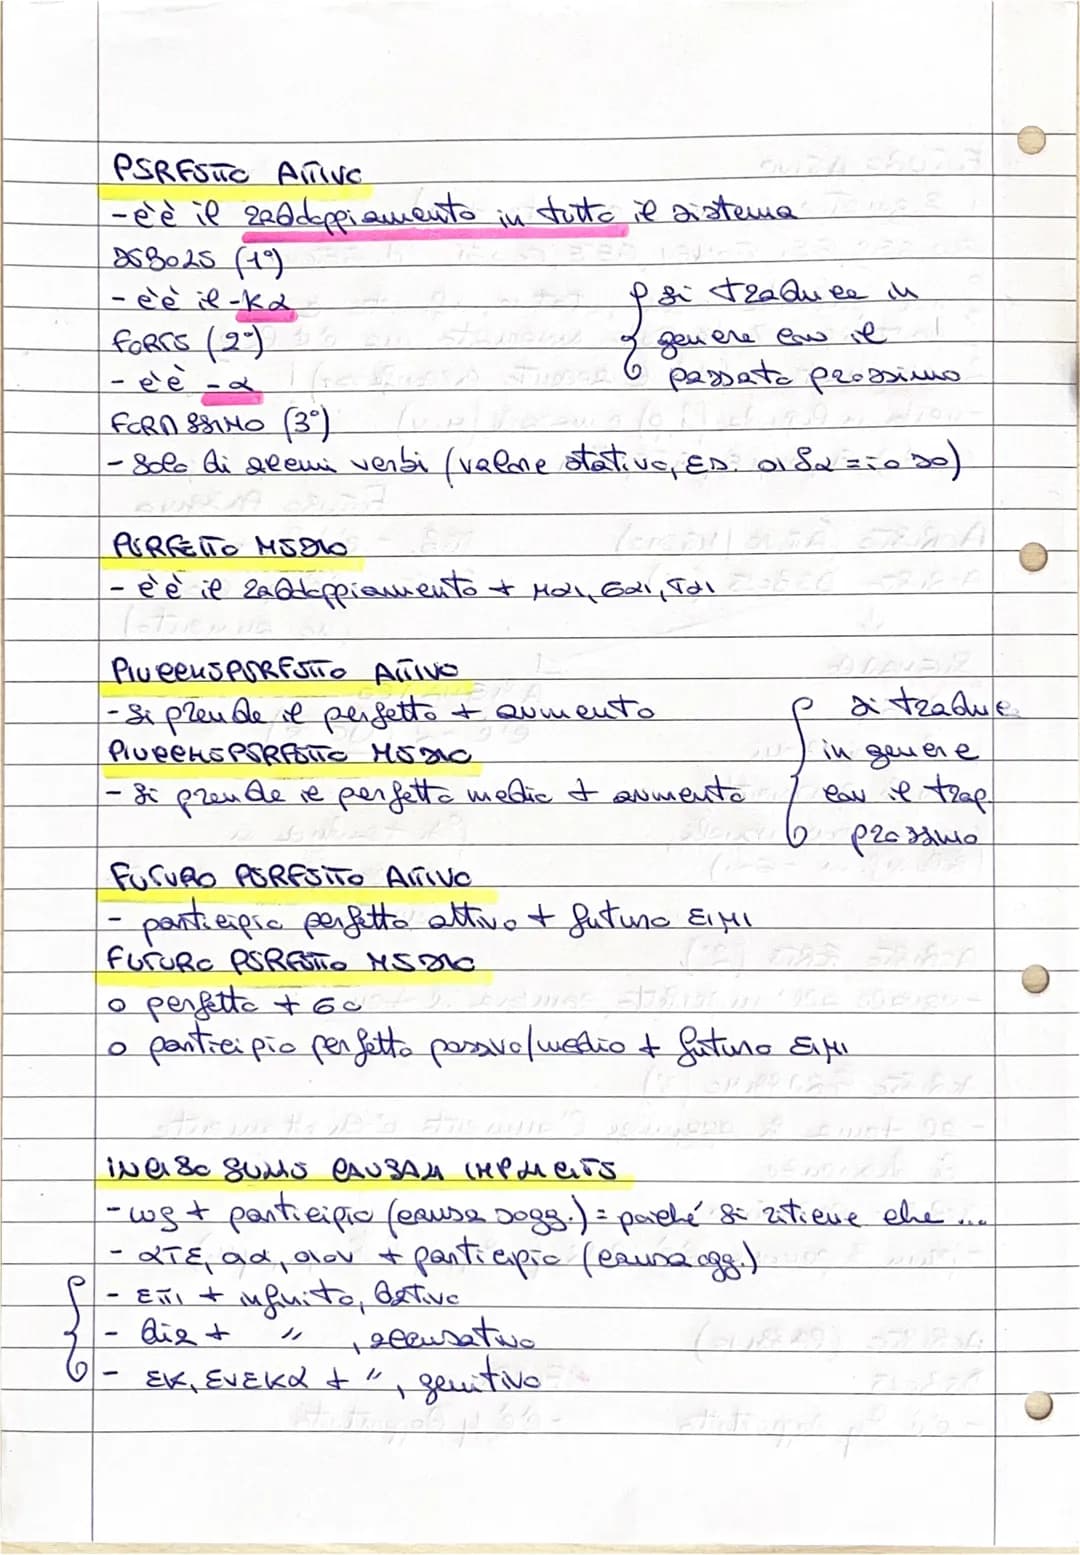 PERFETTO ATTIVO
- c'è il raddoppiamento in tutto il sistema
DEBOLE (1°)
- c'è il -κα
FORTE (2°)
- c'è -α
FORTISSIMO (3°)
- Solo di alcuni verbi (valore stativo, ES. οιδα = io so)
si traduce in
genere con il
passato prossimo
PERFETTO MEDIO
- c'è il raddoppiamento + μαι, σαι, ται
PIUCCHEPERFETTO ATTIVO
- Si prende il perfetto + aumento
PIUCCHEPERFETTO MEDIO
- Si prende il perfetto medio + aumento
si traduce
in genere
con il trap.
prossimo
FUTURO PERFETTO ATTIVO
- participio perfetto attivo + futuro ειμι
FUTURO PERFETTO MEDIO
o perfetto + σο
o participio perfetto passivo/medio + futuro ειμι
INCISO SULLE CAUSALI IMPLICITE
- ως + participio (causa sogg.) = poiché si ritiene che ...
- ατε, οια, οιον + participio (causa ogg.)
- επι + infinito, dativo
- dia + " , accusativo
- εκ, ενεκα + " , genitivo